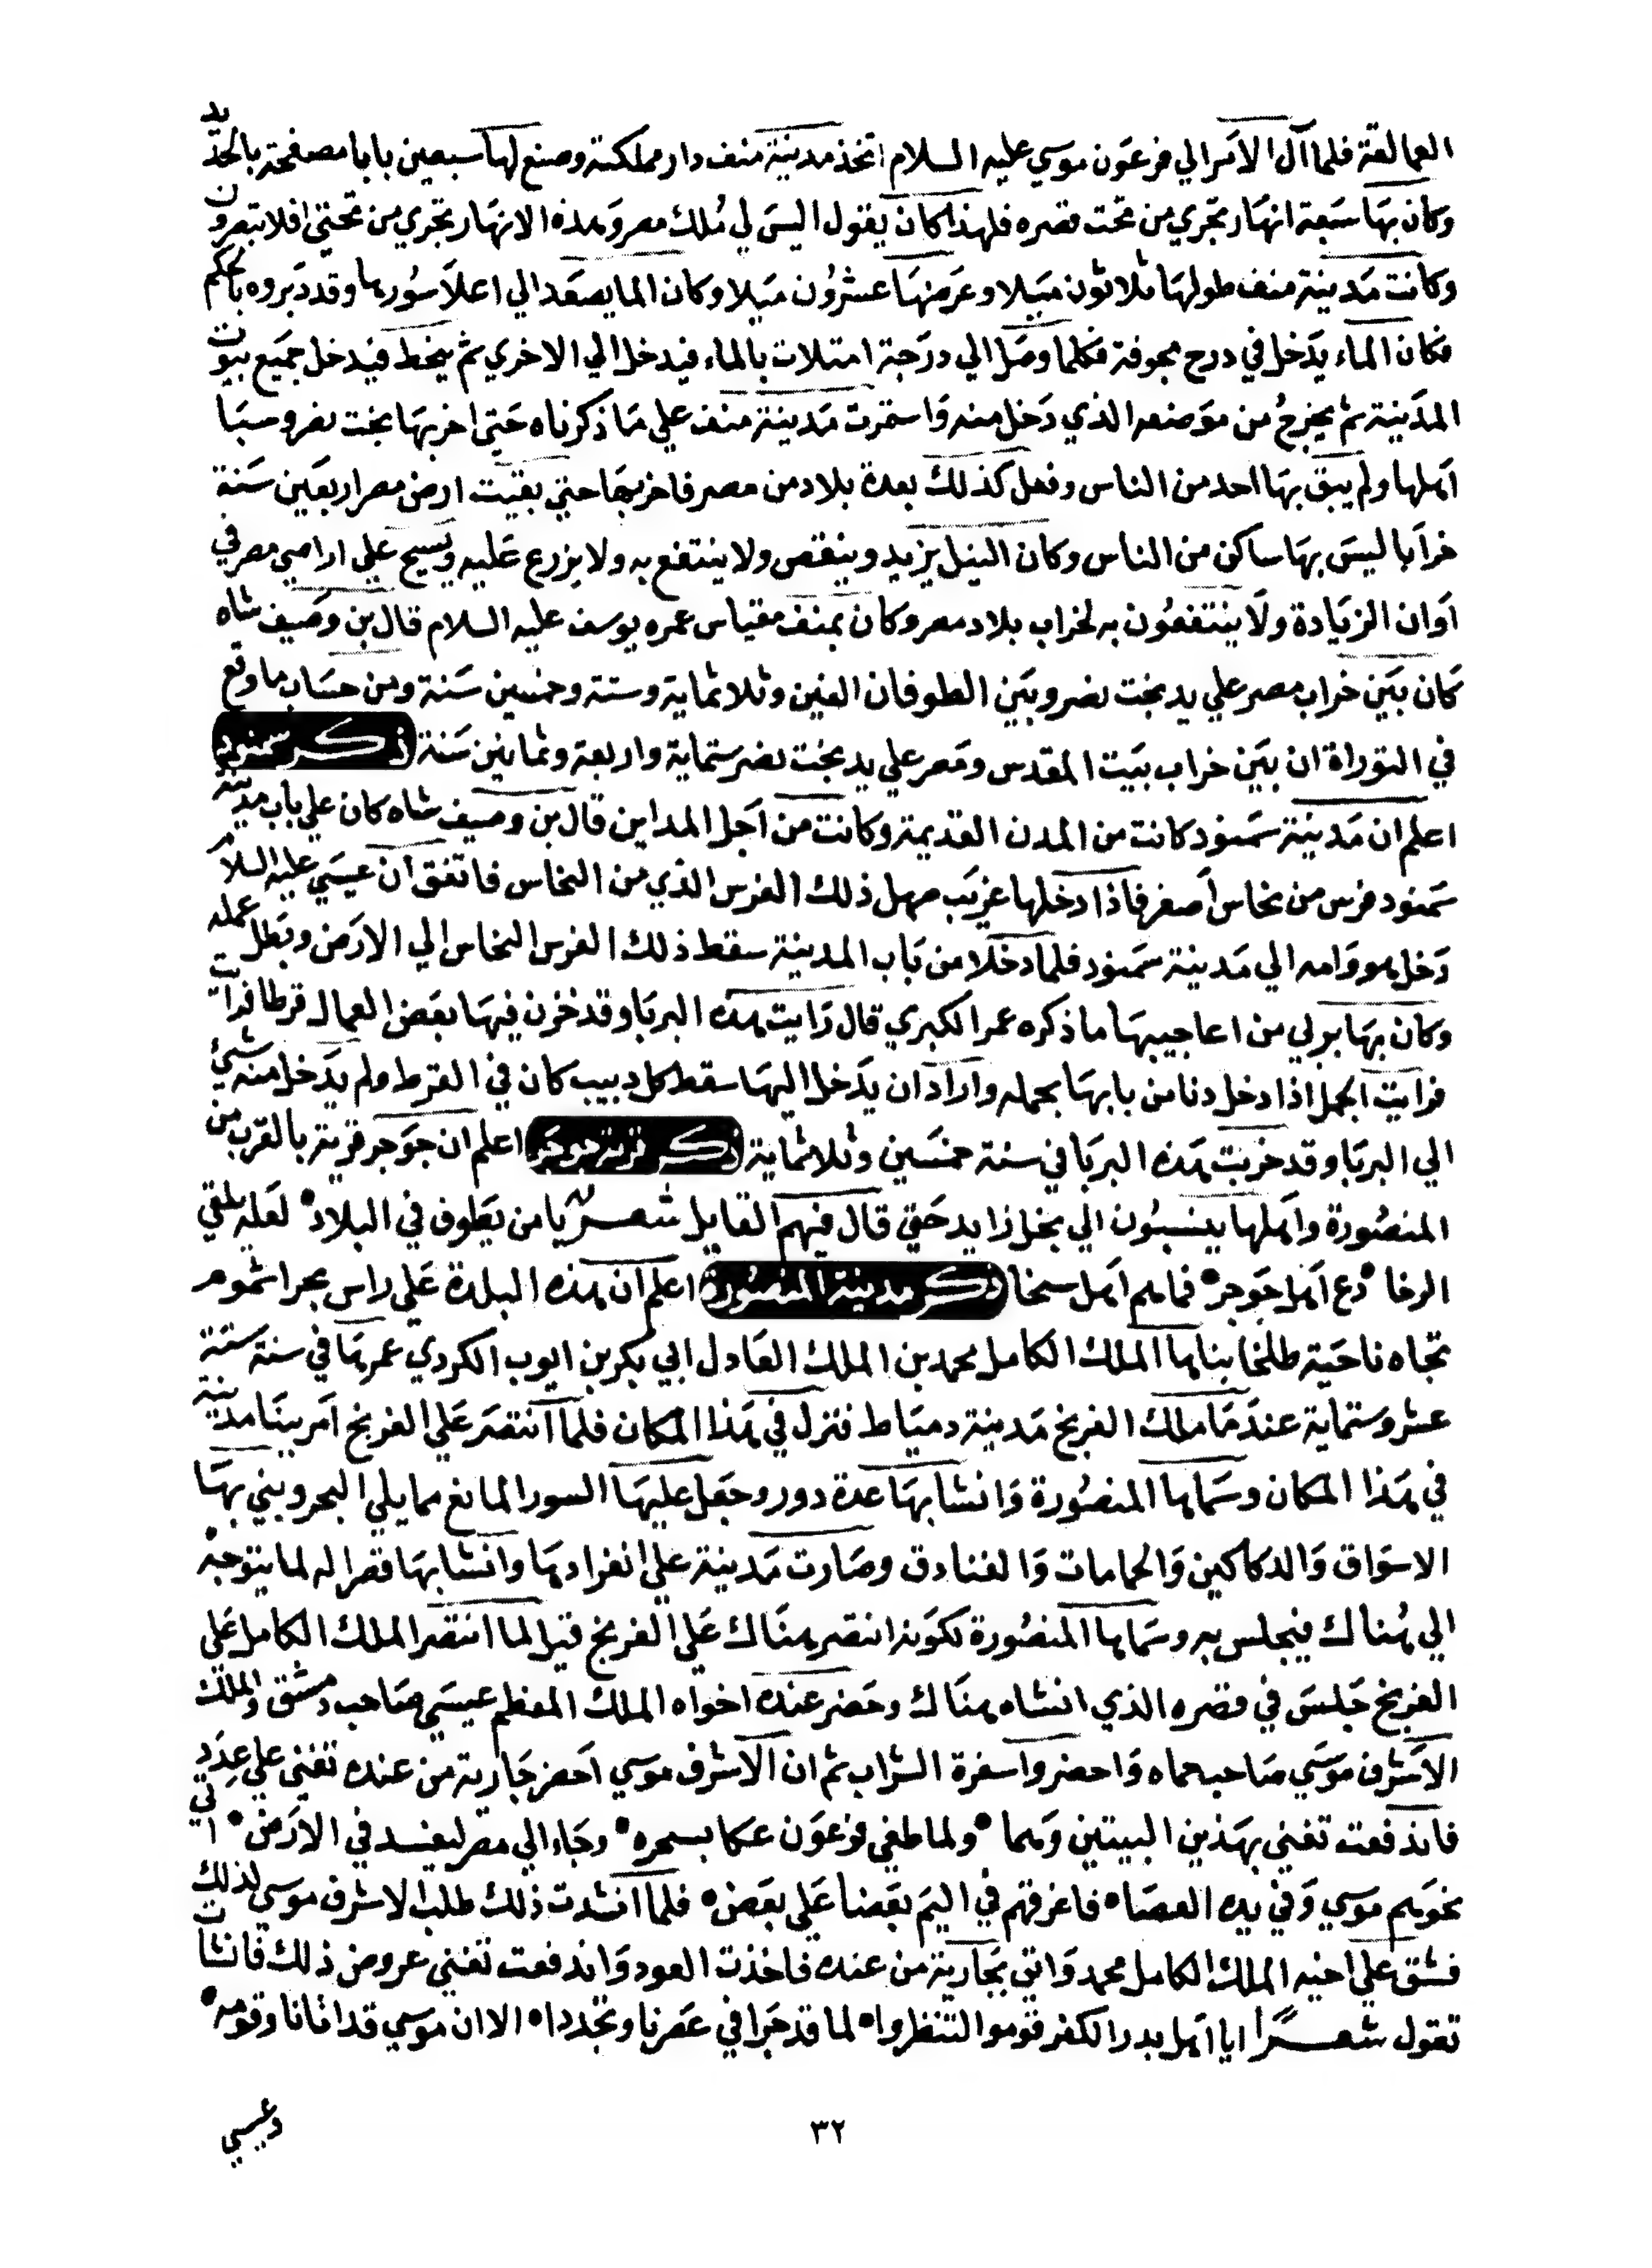 العمالقة فلما آل الامر الي فرعون موسي عليه السلام اتخذ مدينة منف دار مملكته وصنع لها سبعين بابا مصفحة بالحديد
وكان بها سبعة انهار تجري من تحت قصره فلهذا كان يقول اليس لي ملك مصر وهذه الانهار تجري من تحتي افلا تبصرون
وكانت مدينة منف طولها ثلاثون ميلا وعرضها عشرون ميلا وكان الما يصعد الي اعلا سورها وقد دبروه بالحكم
فكان الماء يدخل في درج مجوفة فكلما وصل الي درجة امتلات بالماء فيدخل الي الاخري ثم ينحط فيدخل جميع بيوت
المدينة ثم يخرج من موضعه الذي دخل منه واستمرت مدينة منف علي ما ذكرناه حتي اخربها بخت نصر وسبا
اهلها ولم يبق بها احد من الناس وفعل كذلك بعدة بلاد من مصر فاخربها حتي بقيت ارض مصر اربعين سنة
خرابا ليس بها ساكن من الناس وكان النيل يزيد وينقص ولا ينتفع به ولا يزرع عليه ويسيح علي اراضي مصر في
اوان الزيادة ولا ينتفعون به لخراب بلاد مصر وكان بمنف مقياس عمره يوسف عليه السلام قال بن وصيف شاه
كان بين خراب مصر علي يد بخت نصر وبين الطوفان الفين وثلاثماية وستة وخمسين سنة ومن حساب ما وقع
في التوراة ان بين خراب بيت المقدس ومصر علي يد بخت نصر ستماية واربعة وثمانين سنة ذكر سمنود
اعلم ان مدينة سمنود كانت من المدن القديمة وكانت من اجل المداين قال بن وصيف شاه كان علي باب مدينة
سمنود فرس من نحاس اصفر فاذا دخلها غريب صهل ذلك الفرس الذي من النحاس فاتفق ان عيسي عليه السلام
دخل هو وامه الي مدينة سمنود فلما دخلا من باب المدينة سقط ذلك الفرس النحاس الي الارض وبطل عمله
وكان بها بولي من اعاجيبها ما ذكره عمر الكبري قال رايت هذه البربا وقد خزن فيها بعض العمال قرطا فرايت
فرايت الجمل اذا دخل دنا من بابها بحمله واراد ان يدخل اليها سقط كل دبيب كان في القرط ولم يدخل منه شيء
الي البربا وقد خربت هذه البربا في سنة خمسين وثلاثماية ذكر قرية جوجر اعلم ان جوجر قرية بالقرب من
المنصورة واهلها ينسبون الي بخل زايد حتي قال فيهم القايل شعر يا من يطوف في البلاد • لعله يلقي
الرخا • دع اهل جوجر • فما هم اهل سخا ذكر مدينة المنصورة اعلم ان هذه البلدة علي راس بحر اشموم
تجاه ناحية طلخا بناها الملك الكامل محمد بن الملك العادل ابي بكر بن ايوب الكردي عمرها في سنة ستة
عشر وستماية عند ما ملك الفرنج مدينة دمياط فنزل في هذا المكان فلما انتصر علي الفرنج امر ببنا مدينة
في هذا المكان وسماها المنصورة وانشا بها عدة دور وجعل عليها السور المانع مما يلي البحر وبني بها
الاسواق والدكاكين والحمامات والفنادق وصارت مدينة علي انفرادها وانشا بها قصرا له لما يتوجه
الي هناك فيجلس به وسماها المنصورة لكونه انتصر هناك علي الفرنج قيل لما انتصر الملك الكامل علي
الفرنج جلس في قصره الذي انشاه هناك وحضر عنده اخواه الملك المعظم عيسي صاحب دمشق والملك
الاشرف موسي صاحب حماه واحضروا سفرة الشراب ثم ان الاشرف موسي احضر جارية من عنده تغني علي
فاندفعت تغني بهذين البيتين وهما • ولما طغي فرعون عكا بسحره • وجاء الي مصر ليفسد في الارض • اتي
نحوهم موسي وفي يده العصا • فاغرقهم في اليم بعضا علي بعض • فلما انشدت ذلك طلب الاشرف موسي لذلك
فشق علي اخيه الملك الكامل محمد واتي بجارية من عنده فاخذت العود واندفعت تغني عروض ذلك فانشات
تقول شعرا ايا اهل بدر الكفر قوموا لتنظروا • لما قد جرا في عصرنا وتجددا • الا ان موسي قد اتانا وقومه •
وعيسي
٣٢